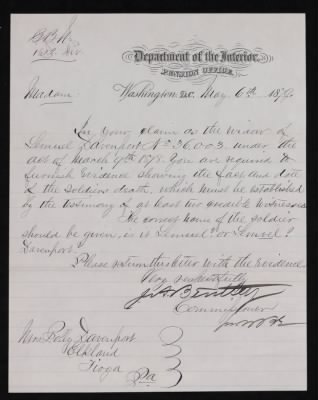 Department of the Interior,
PENSION OFFICE,
Washington D.C. May 6th 1879.
Madam:
In your claim as the widow of
Lemuel Davenport No 36.003 under the
act of March 9th 1878. You are required to
furnish evidence showing the fact and date
of the soldiers death, which must be established
by the testimony of at least two credible witnesses.
The correct name of the soldier
should be given, is it Lemuel? or Samuel?
Davenport?
Please return this letter with the evidence.
Very respectfully
J. A. Bentley
Commissioner
Mrs Polly Davenport
Elkland
Tioga
Pa